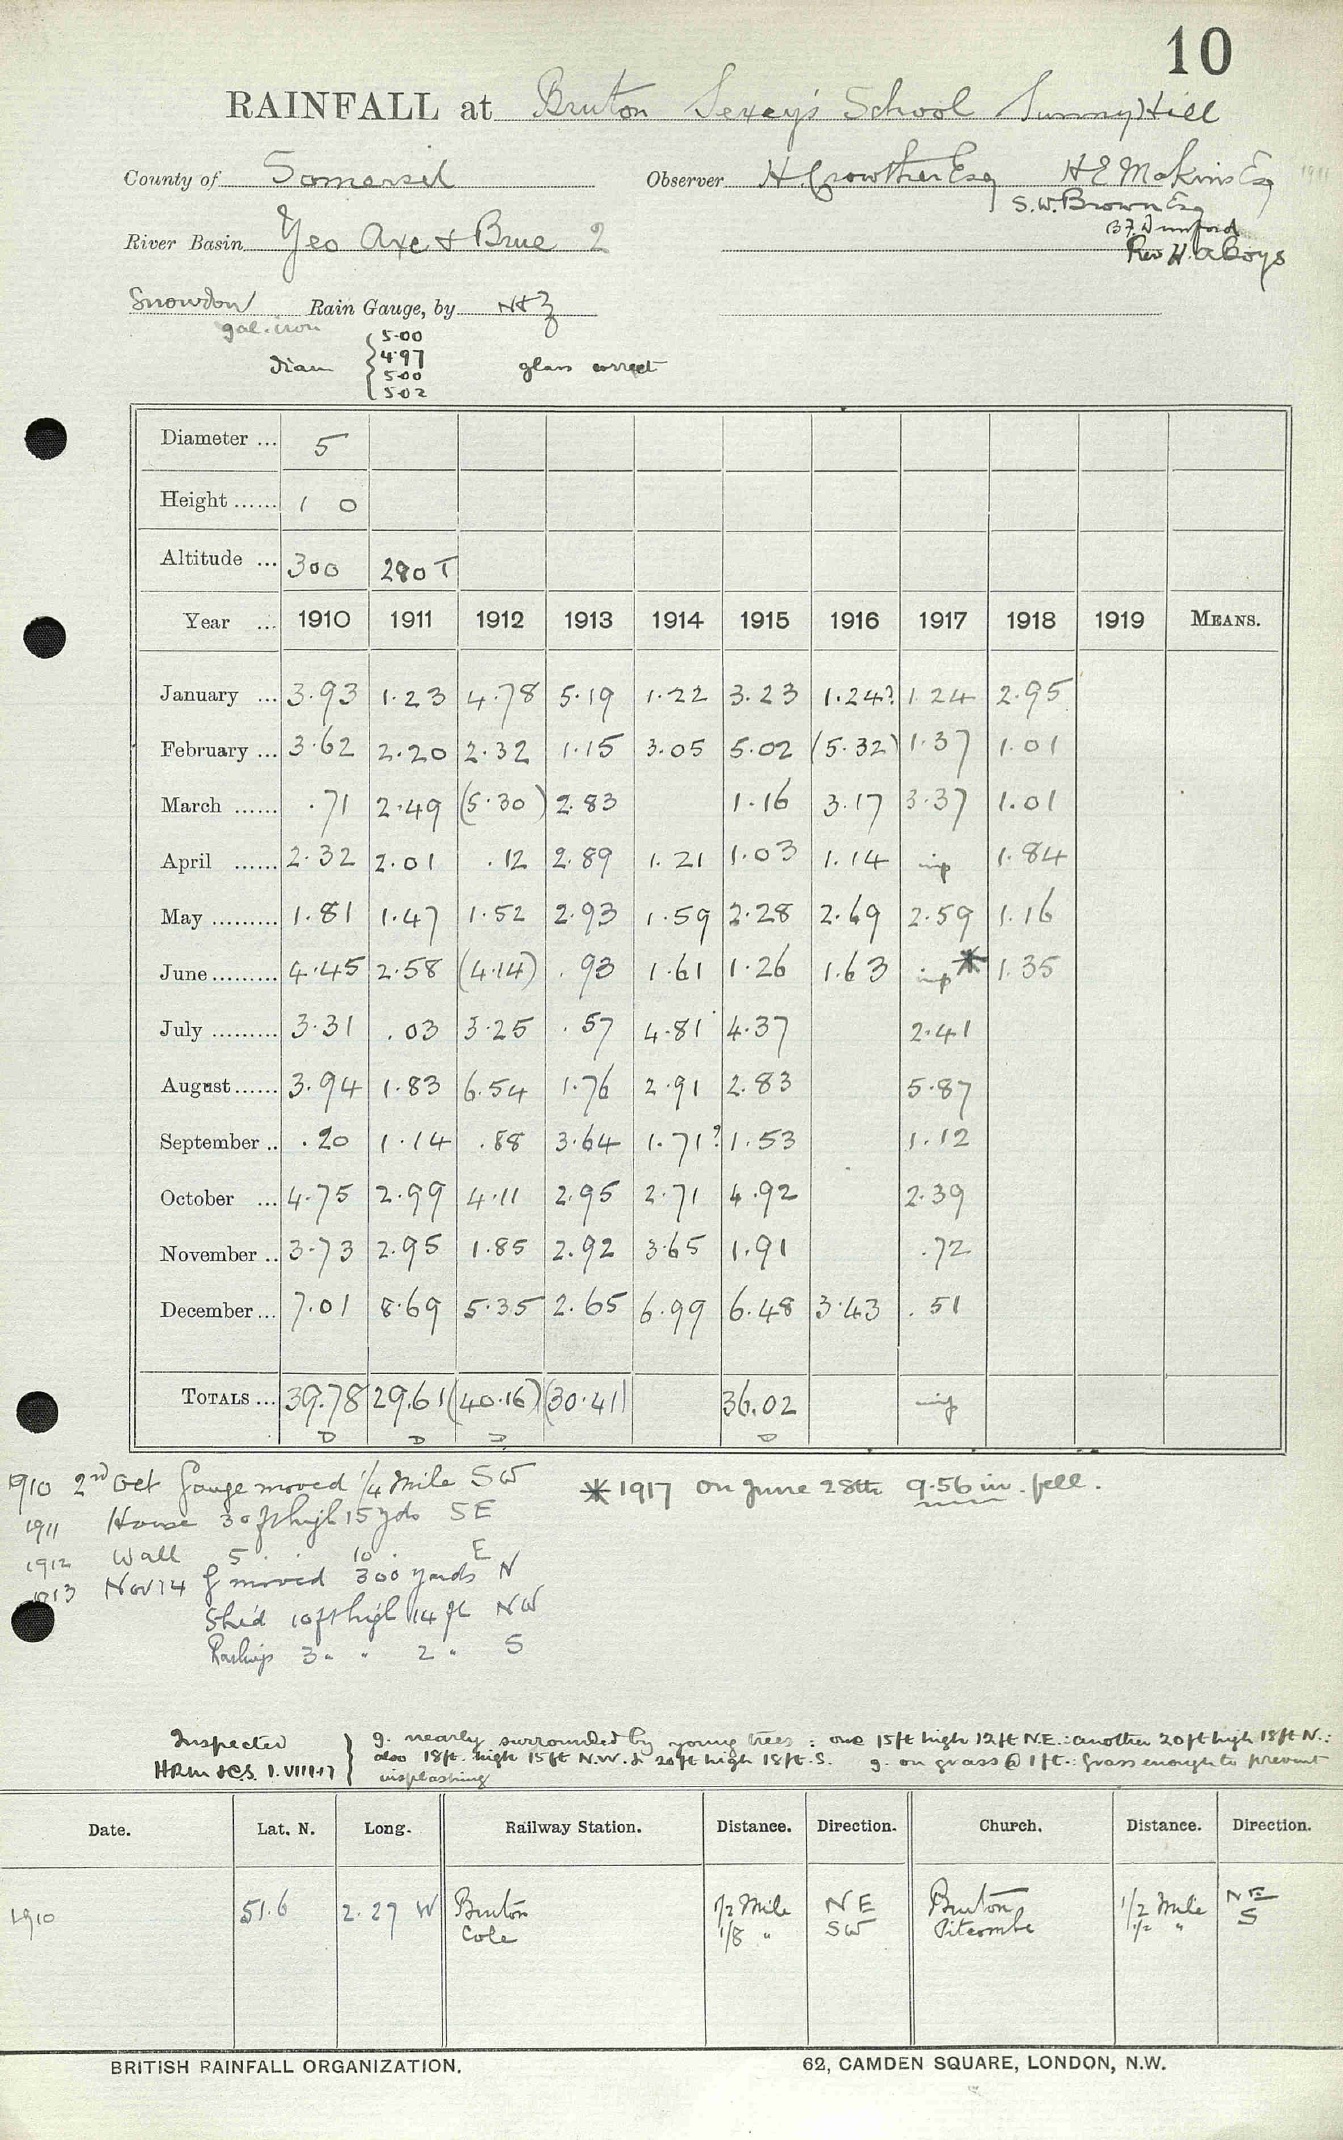 10
RAINFALL at Bruton Sexey's School Sunny Hill
County of Somerset Observer H. Crowther Esq H E Makins Esq 1911
S. W. Brown Esq
River Basin Yeo Axe & Brue 2
Rev H. A Boys
Snowdon Rain Gauge, by N & Z
gal. iron
diam { 5.00 4.97 5.00 5.02 glass correct
Diameter ... 5
Height ...... 1 0
Altitude ... 300 280 T
Year ... 1910 1911 1912 1913 1914 1915 1916 1917 1918 1919 MEANS.
January ... 3.93 1.23 4.78 5.19 1.22 3.23 1.24? 1.24 2.95
February ... 3.62 2.20 2.32 1.15 3.05 5.02 (5.32) 1.37 1.01
March ...... .71 2.49 (5.30) 2.83 1.16 3.17 3.37 1.01
April ...... 2.32 2.01 .12 2.89 1.21 1.03 1.14 inp 1.84
May ......... 1.81 1.47 1.52 2.93 1.59 2.28 2.69 2.59 1.16
June ......... 4.45 2.58 (4.14) .93 1.61 1.26 1.63 inp * 1.35
July ......... 3.31 .03 3.25 .57 4.81 4.37 2.41
August ...... 3.94 1.83 6.54 1.76 2.91 2.83 5.87
September .. .20 1.14 .88 3.64 1.71? 1.53 1.12
October ... 4.75 2.99 4.11 2.95 2.71 4.92 2.39
November .. 3.73 2.95 1.85 2.92 3.65 1.91 .72
December ... 7.01 8.69 5.35 2.65 6.99 6.48 3.43 .51
TOTALS ... 39.78 29.61 (40.16) (30.41) 36.02 inp
D D D D
1910 2nd Oct Gauge moved 1/4 Mile SW * 1917 On June 28th 9.56 in. fell.
1911 House 30 ft high 15 yds SE
1912 Wall 5 . . 10 . E
1913 Nov 14 G moved 300 yards N
Shed 10 ft high 14 ft NW
3 " " 2 " S
Inspected } g. nearly surrounded by young trees : one 15ft high 12ft N.E. : another 20ft high 18ft N. :
also 18ft. high 15ft N.W. & 20ft high 18ft. S. g. on grass @ 1 ft. : Grass enough to prevent
HRM & C.S. 1.VIII.17 insplashing
Date. Lat. N. Long. Railway Station. Distance. Direction. Church. Distance. Direction.
1910 51.6 2.27 W Bruton 1/2 Mile NE Bruton 1/2 Mile NE
Cole 1/8 " SW Pitcombe 1/2 " S
BRITISH RAINFALL ORGANIZATION. 62, CAMDEN SQUARE, LONDON, N.W.